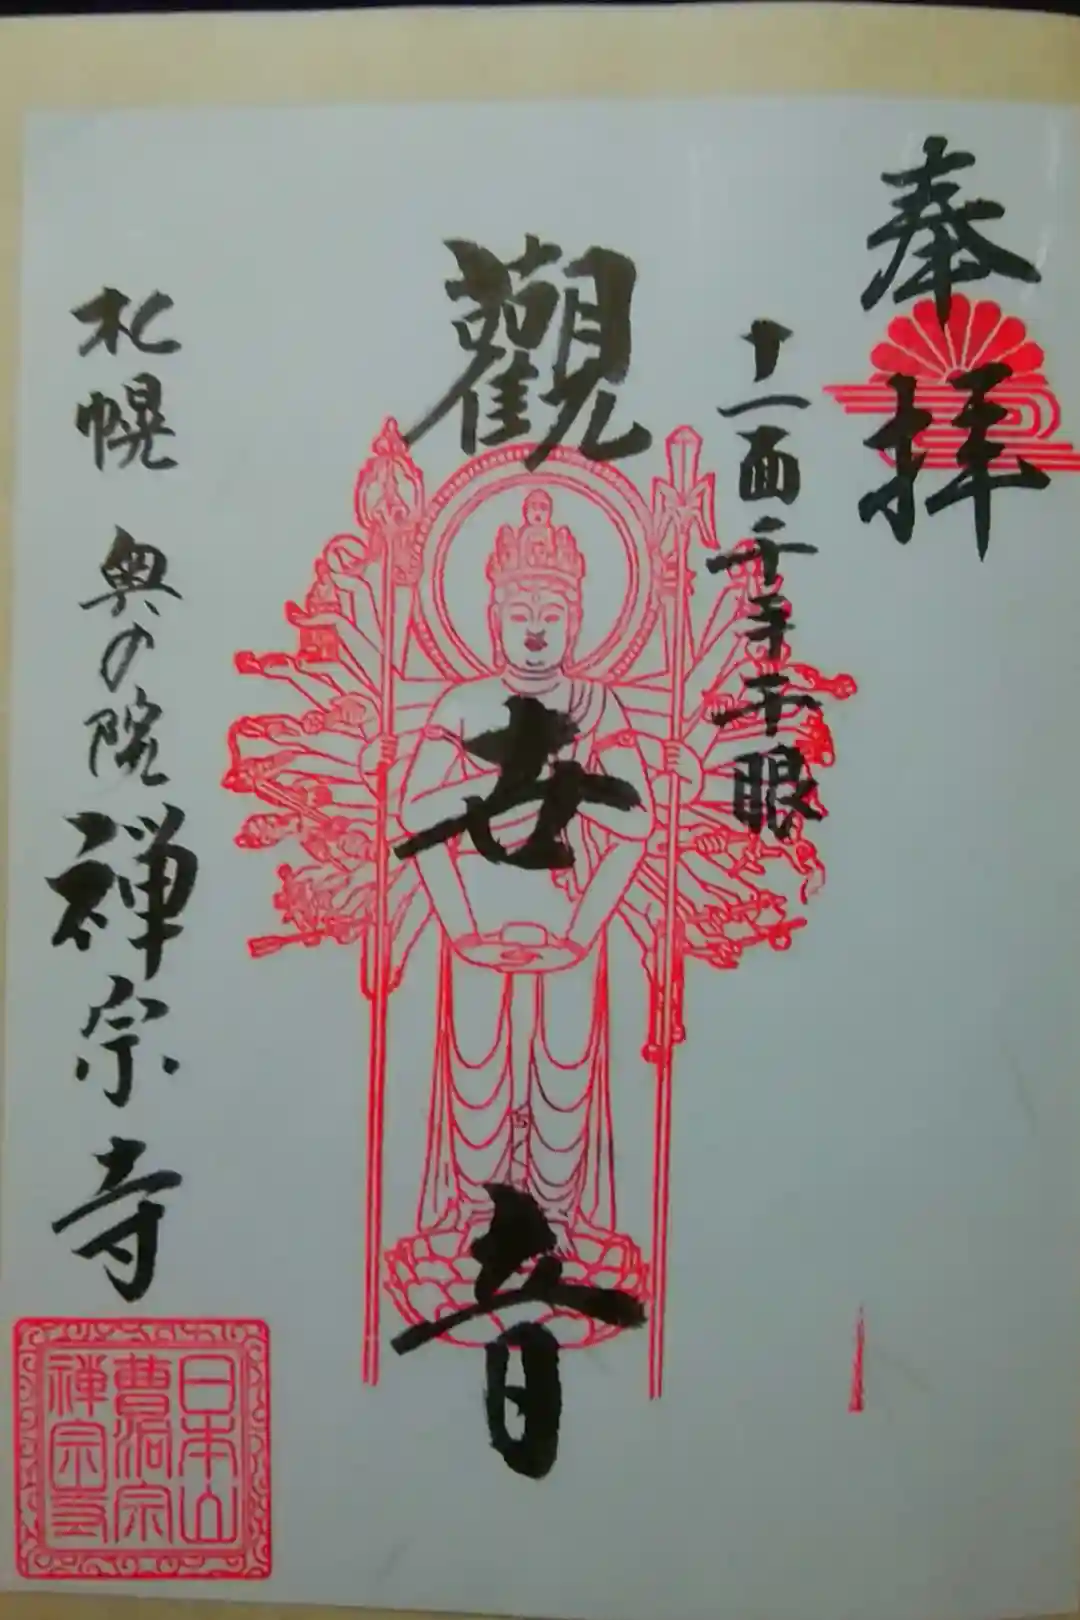 奉拝
十一面千手千眼
觀世音
札幌 奥の院 禅宗寺
日本山
曹洞宗
禅宗寺